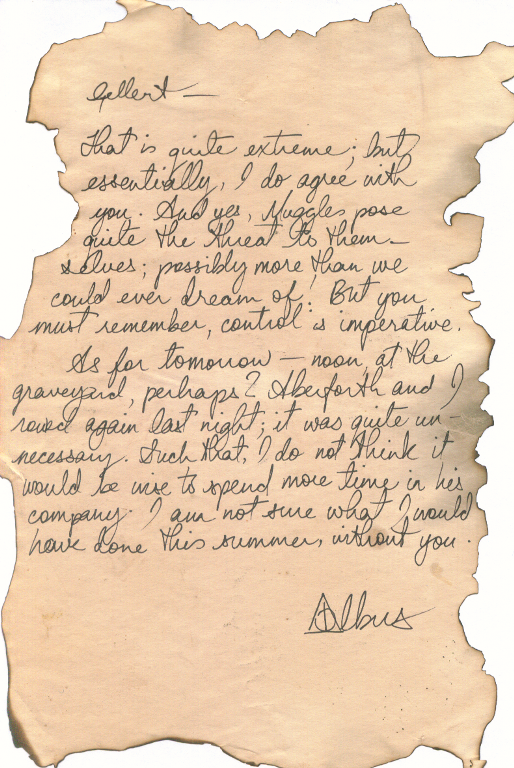 Gellert —
That is quite extreme; but
essentially, I do agree with
you. And yes, Muggles pose
quite the threat to them-
selves; possibly more than we
could ever dream of! But you
must remember, control is imperative.
As for tomorrow — noon, at the
graveyard, perhaps? Aberforth and I
rowed again last night; it was quite un-
necessary. Such that, I do not think it
would be wise to spend more time in his
company. I am not sure what I would
have done this summer, without you.
Albus